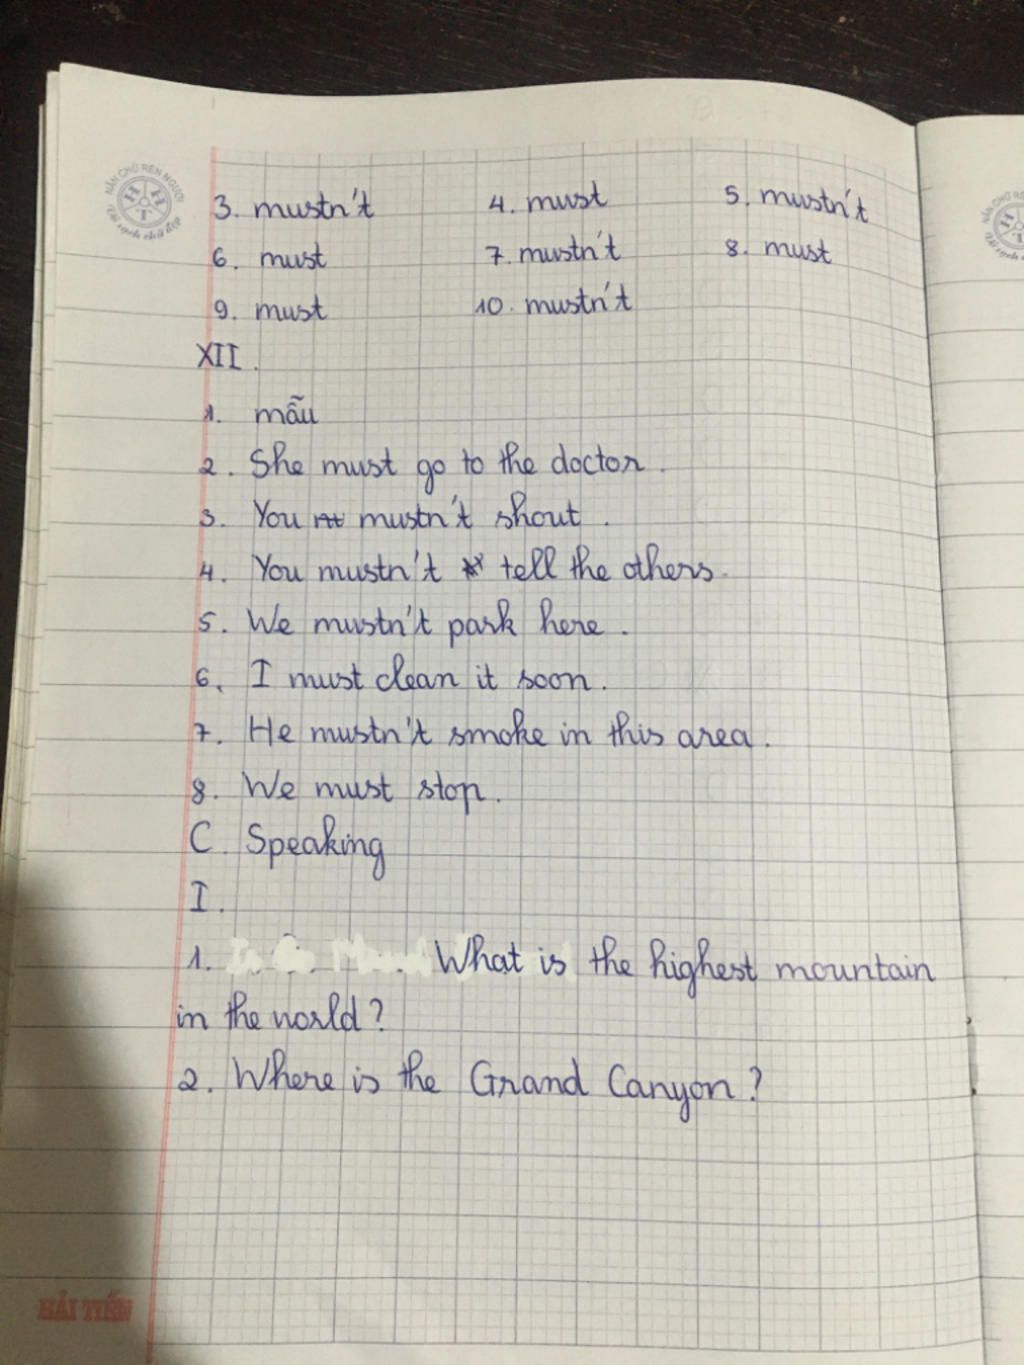 NẮN CHỮ RÈN NGƯỜI
H H T
Vở sạch chữ đẹp
3. mustn't 4. must 5. mustn't
6. must 7. mustn't 8. must
9. must 10. mustn't
XII.
1. mẫu
2. She must go to the doctor.
3. You mustn't shout.
4. You mustn't tell the others.
5. We mustn't park here.
6. I must clean it soon.
7. He mustn't smoke in this area.
8. We must stop.
C. Speaking
I.
1. What is the highest mountain
in the world?
2. Where is the Grand Canyon?
HẢI TIẾN